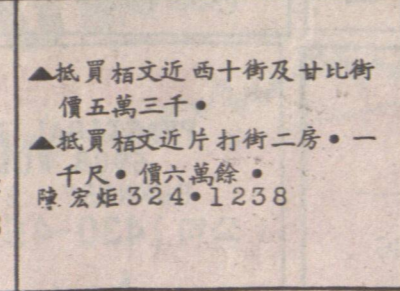 ▲抵買栢文近西十街及甘比街
價五萬三千●
▲抵買栢文近片打街二房●一
千尺●價六萬餘●
陳宏炬324●1238